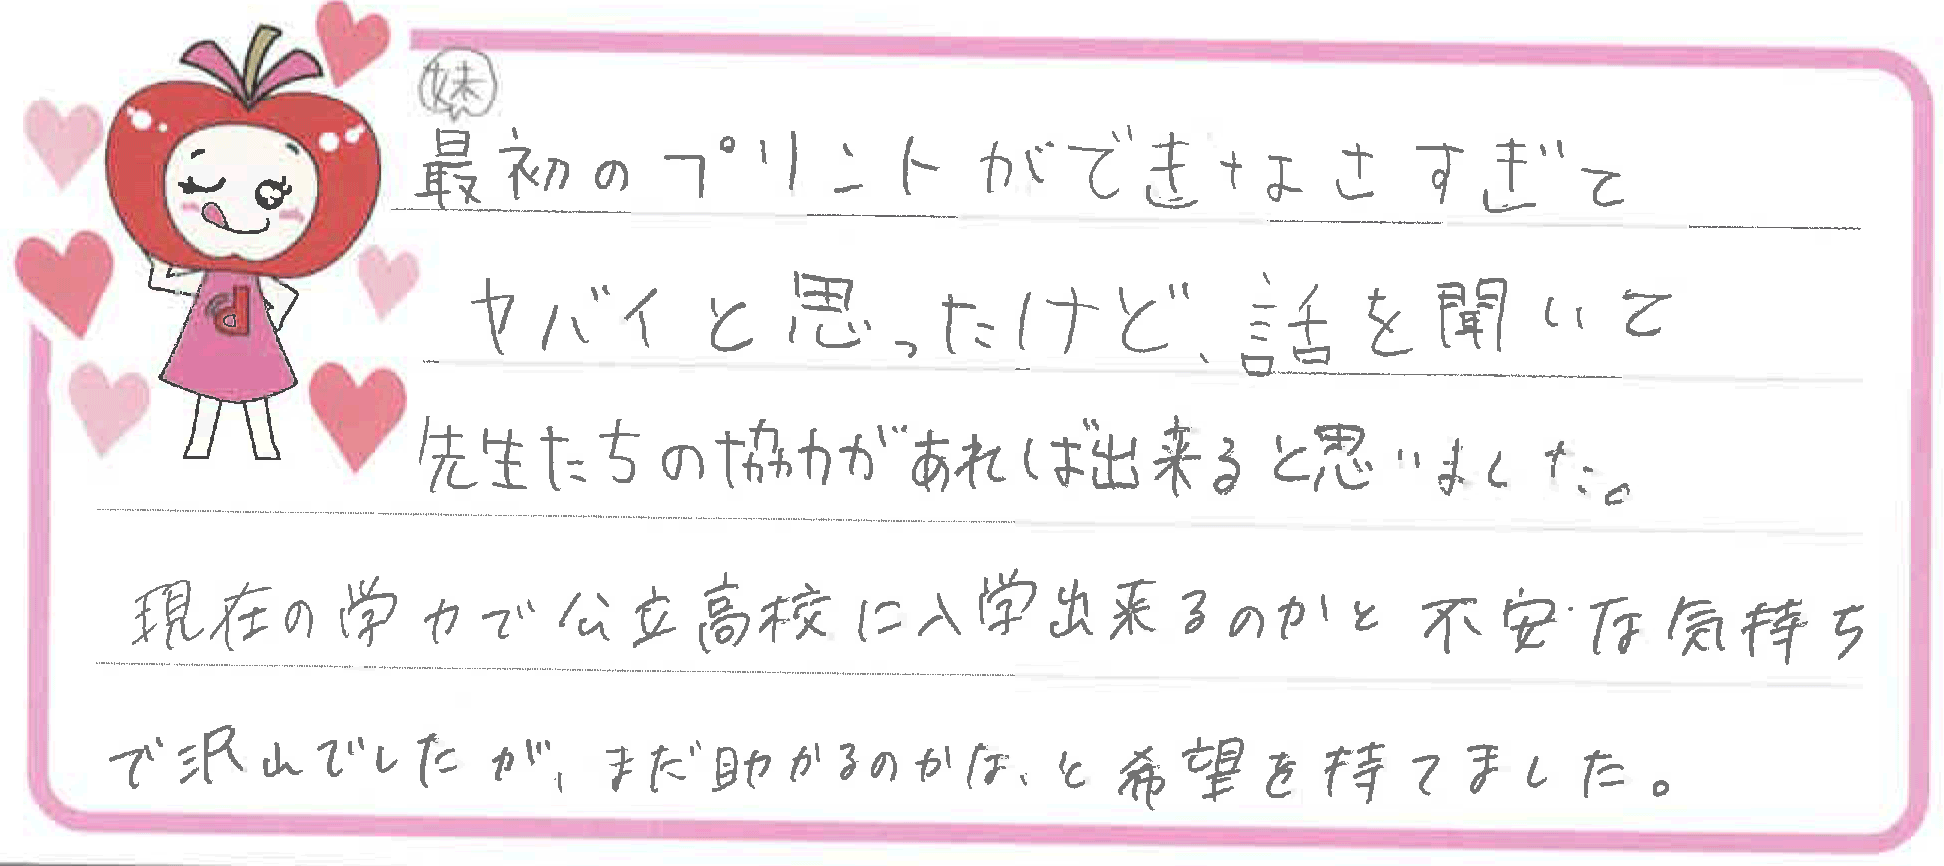 妹
最初のプリントができなさすぎて
ヤバイと思ったけど、話を聞いて
先生たちの協力があれば出来ると思いました。
現在の学力で公立高校に入学出来るのかと不安な気持ち
で沢山でしたが、まだ助かるのかな、と希望を持てました。
d